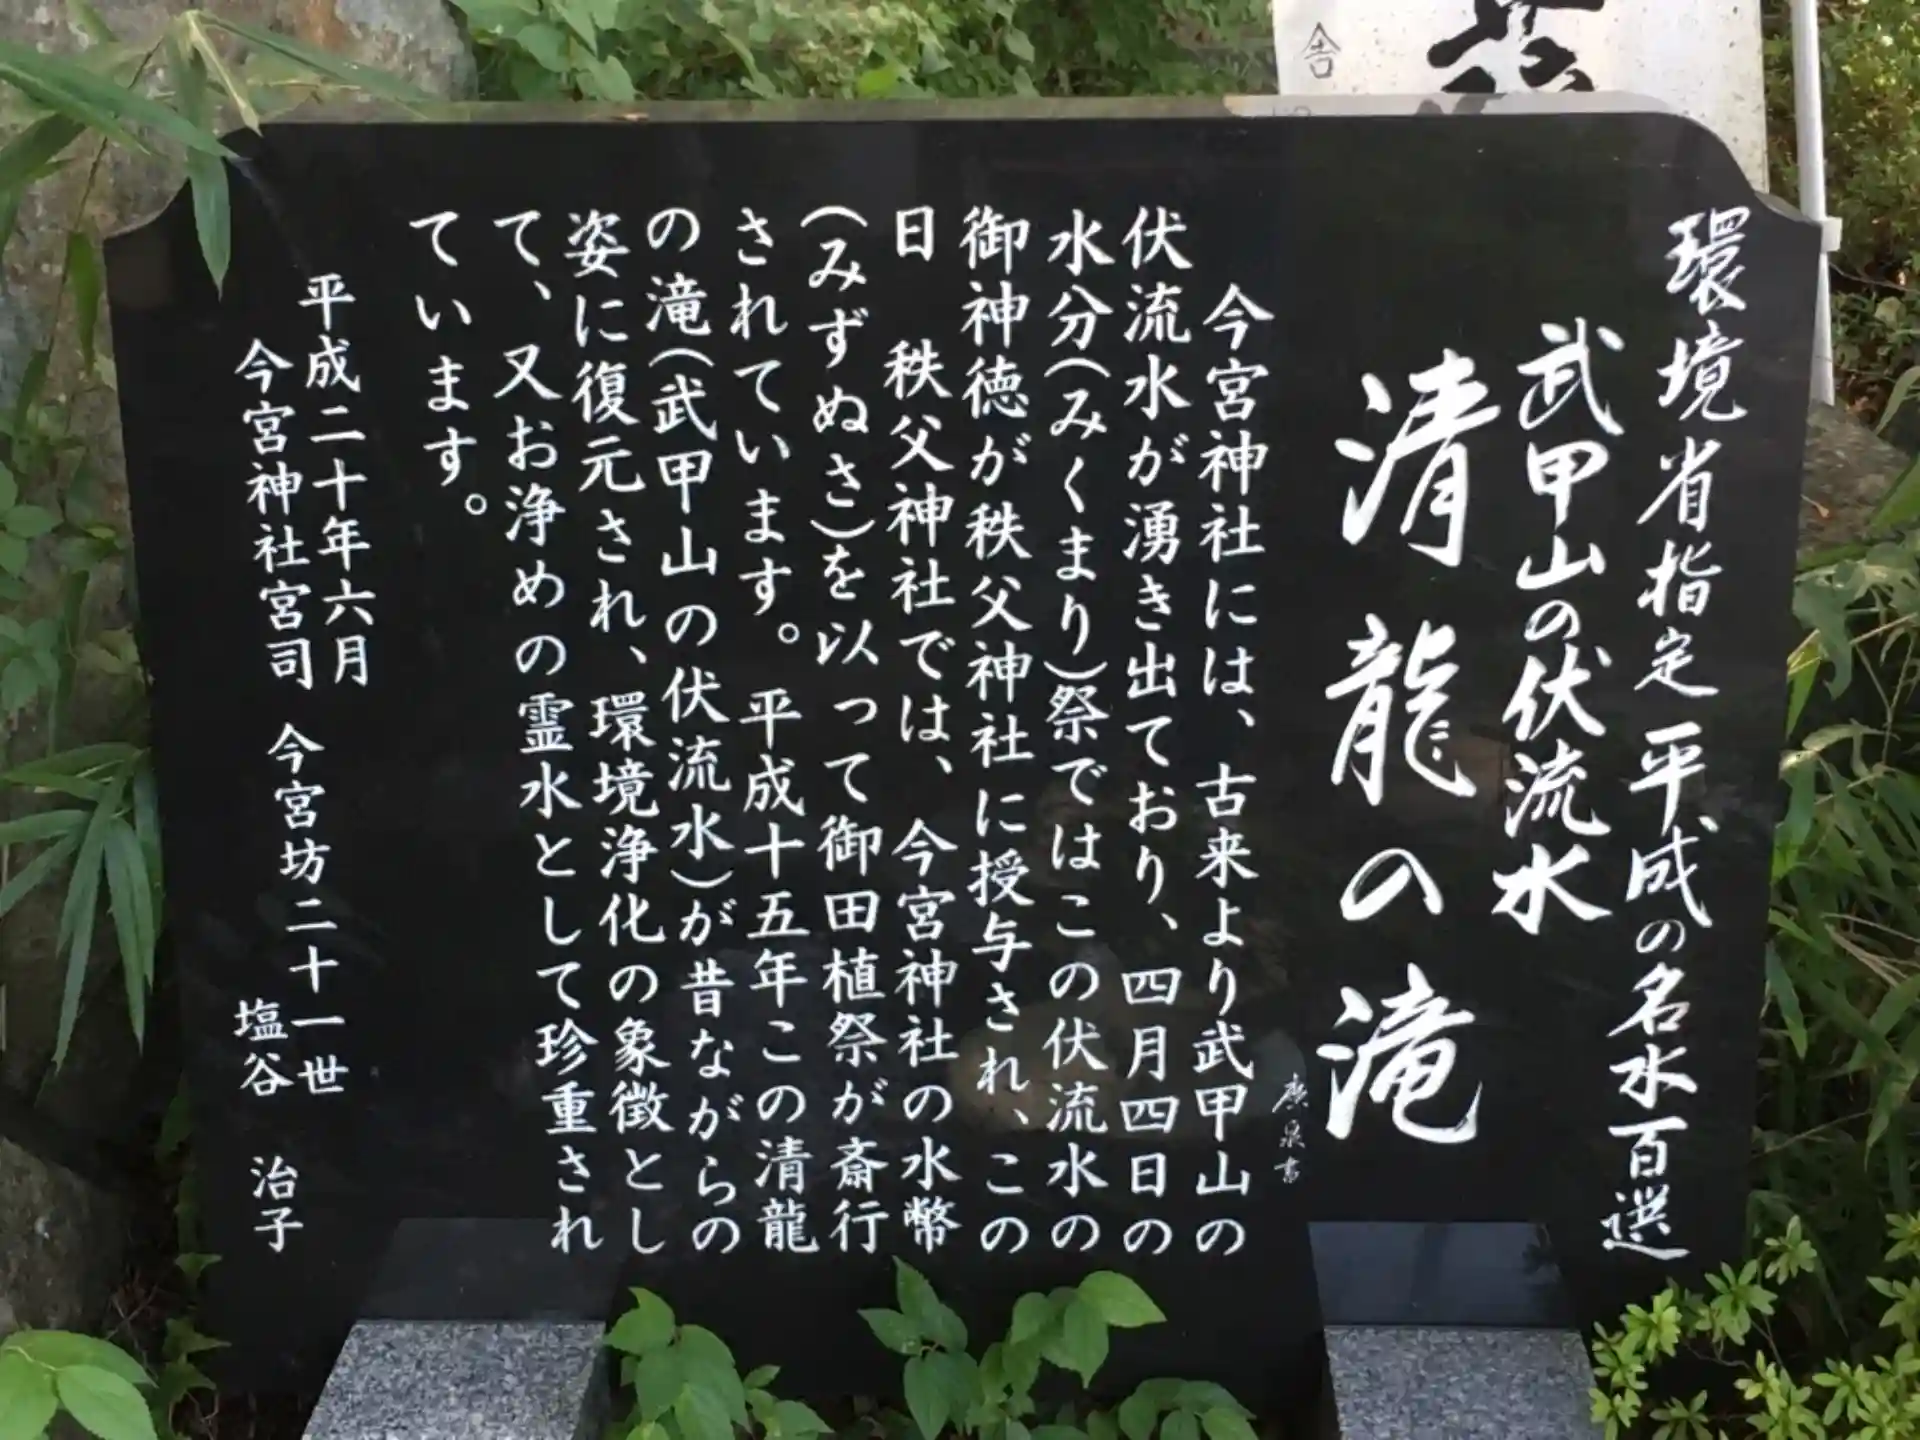 環境省指定平成の名水百選
武甲山の伏流水
清龍の滝
廣泉書
今宮神社には、古来より武甲山の
伏流水が湧き出ており、四月四日の
水分(みくまり)祭ではこの伏流水の
御神徳が秩父神社に授与され、この
日　秩父神社では、今宮神社の水幣
(みずぬさ)を以って御田植祭が斎行
されています。平成十五年この清龍
の滝(武甲山の伏流水)が昔ながらの
姿に復元され、環境浄化の象徴とし
て、又お浄めの霊水として珍重され
ています。
平成二十年六月
今宮神社宮司　今宮坊二十一世
塩谷　治子
舎